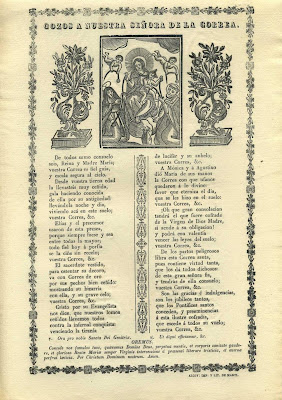 GOZOS A NUESTRA SEÑORA DE LA CORREA.
De todas somo consuelo
sois, Reina y Madre María;
vuestra Correa es fiel guia,
y escala segura al cielo.
Desde vuestra tierna edad
la llevasteis muy ceñida,
para haciendo conocida
de ella por su antigüedad
llevándola noche y dia,
viviendo acá en este suelo;
vuestra Correa, &c.
Elías y el precursor
usaron de esta presea,
porque siempre fuese y sea
entre todas la mayor;
cada fiel hoy á porfía
se la ciñe sin recelo;
vuestra Correa, &c.
El sacerdote vestido,
para ostentar su decoro,
va con Correa de oro
por sus pechos bien ceñido:
mostrando su
con ella, y su grave celo;
vuestra Correa, &c.
Cristo por su Evangelista
nos dice: que nuestros lomos
ceñidos llevemos todos
contra la infernal conquista:
venciendo la tiranía
de lucifer y su anhelo;
vuestra Correa, &c.
A Mónica y á Agustino
dió María de sus manos
la Correa con que ufanos
quedaron á lo divino:
favor que eterniza el dia,
que se les hizo en el suelo;
vuestra Correa, &c.
¡Oh que gran consolacion
tendrá el que fuere cofrade
de la Vírgen de Dios Madre,
si acude á su obligacion!
y podrá con valentía
vencer las leyes del suelo;
vuestra Correa, &c.
De los partos peligrosos
libra esta Correa santa,
pues contiene virtud tanta,
que los dá todos dichosos
de esta gran señora fia,
y tendrás de ella consuelo;
vuestra Correa, &c.
Son las gracias é indulgencias,
son los jubileos tantos,
que los Pontífices santos
conceden, y preeminencias
á esta ilustre cofradía,
que exceda á todas su vuelo;
vuestra Correa, &c.
℣. Ora pro nobis Sancta Dei Genitrix. ℟. Ut digni efficiamur, &c.
OREMUS.
Concede nos famulos tuos, quæsumus Domine Deus, perpetua mentis, et corporis sanitate gaudere, et gloriosa Beatæ Mariæ semper Virginis intercessione à præsenti liberari tristitia, et æterna
perfrui lætitia. Per Christum Dominum nostrum. Amen.